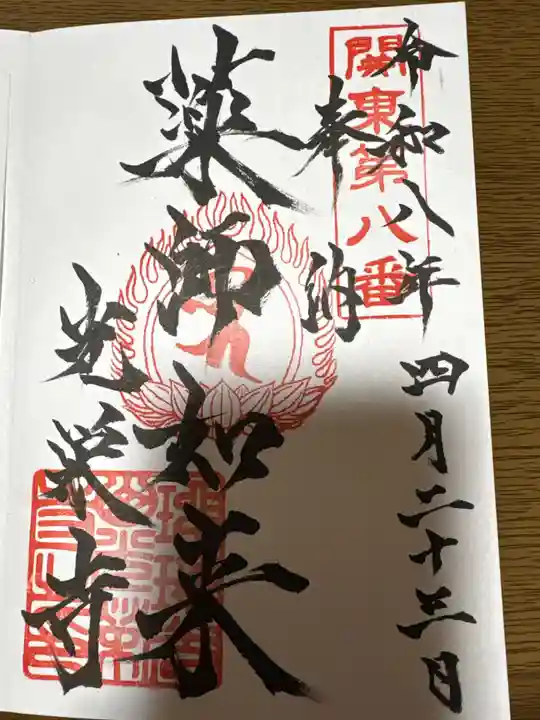 令和八年四月二十三日
関東第八番
奉納
薬師如来
光栄寺